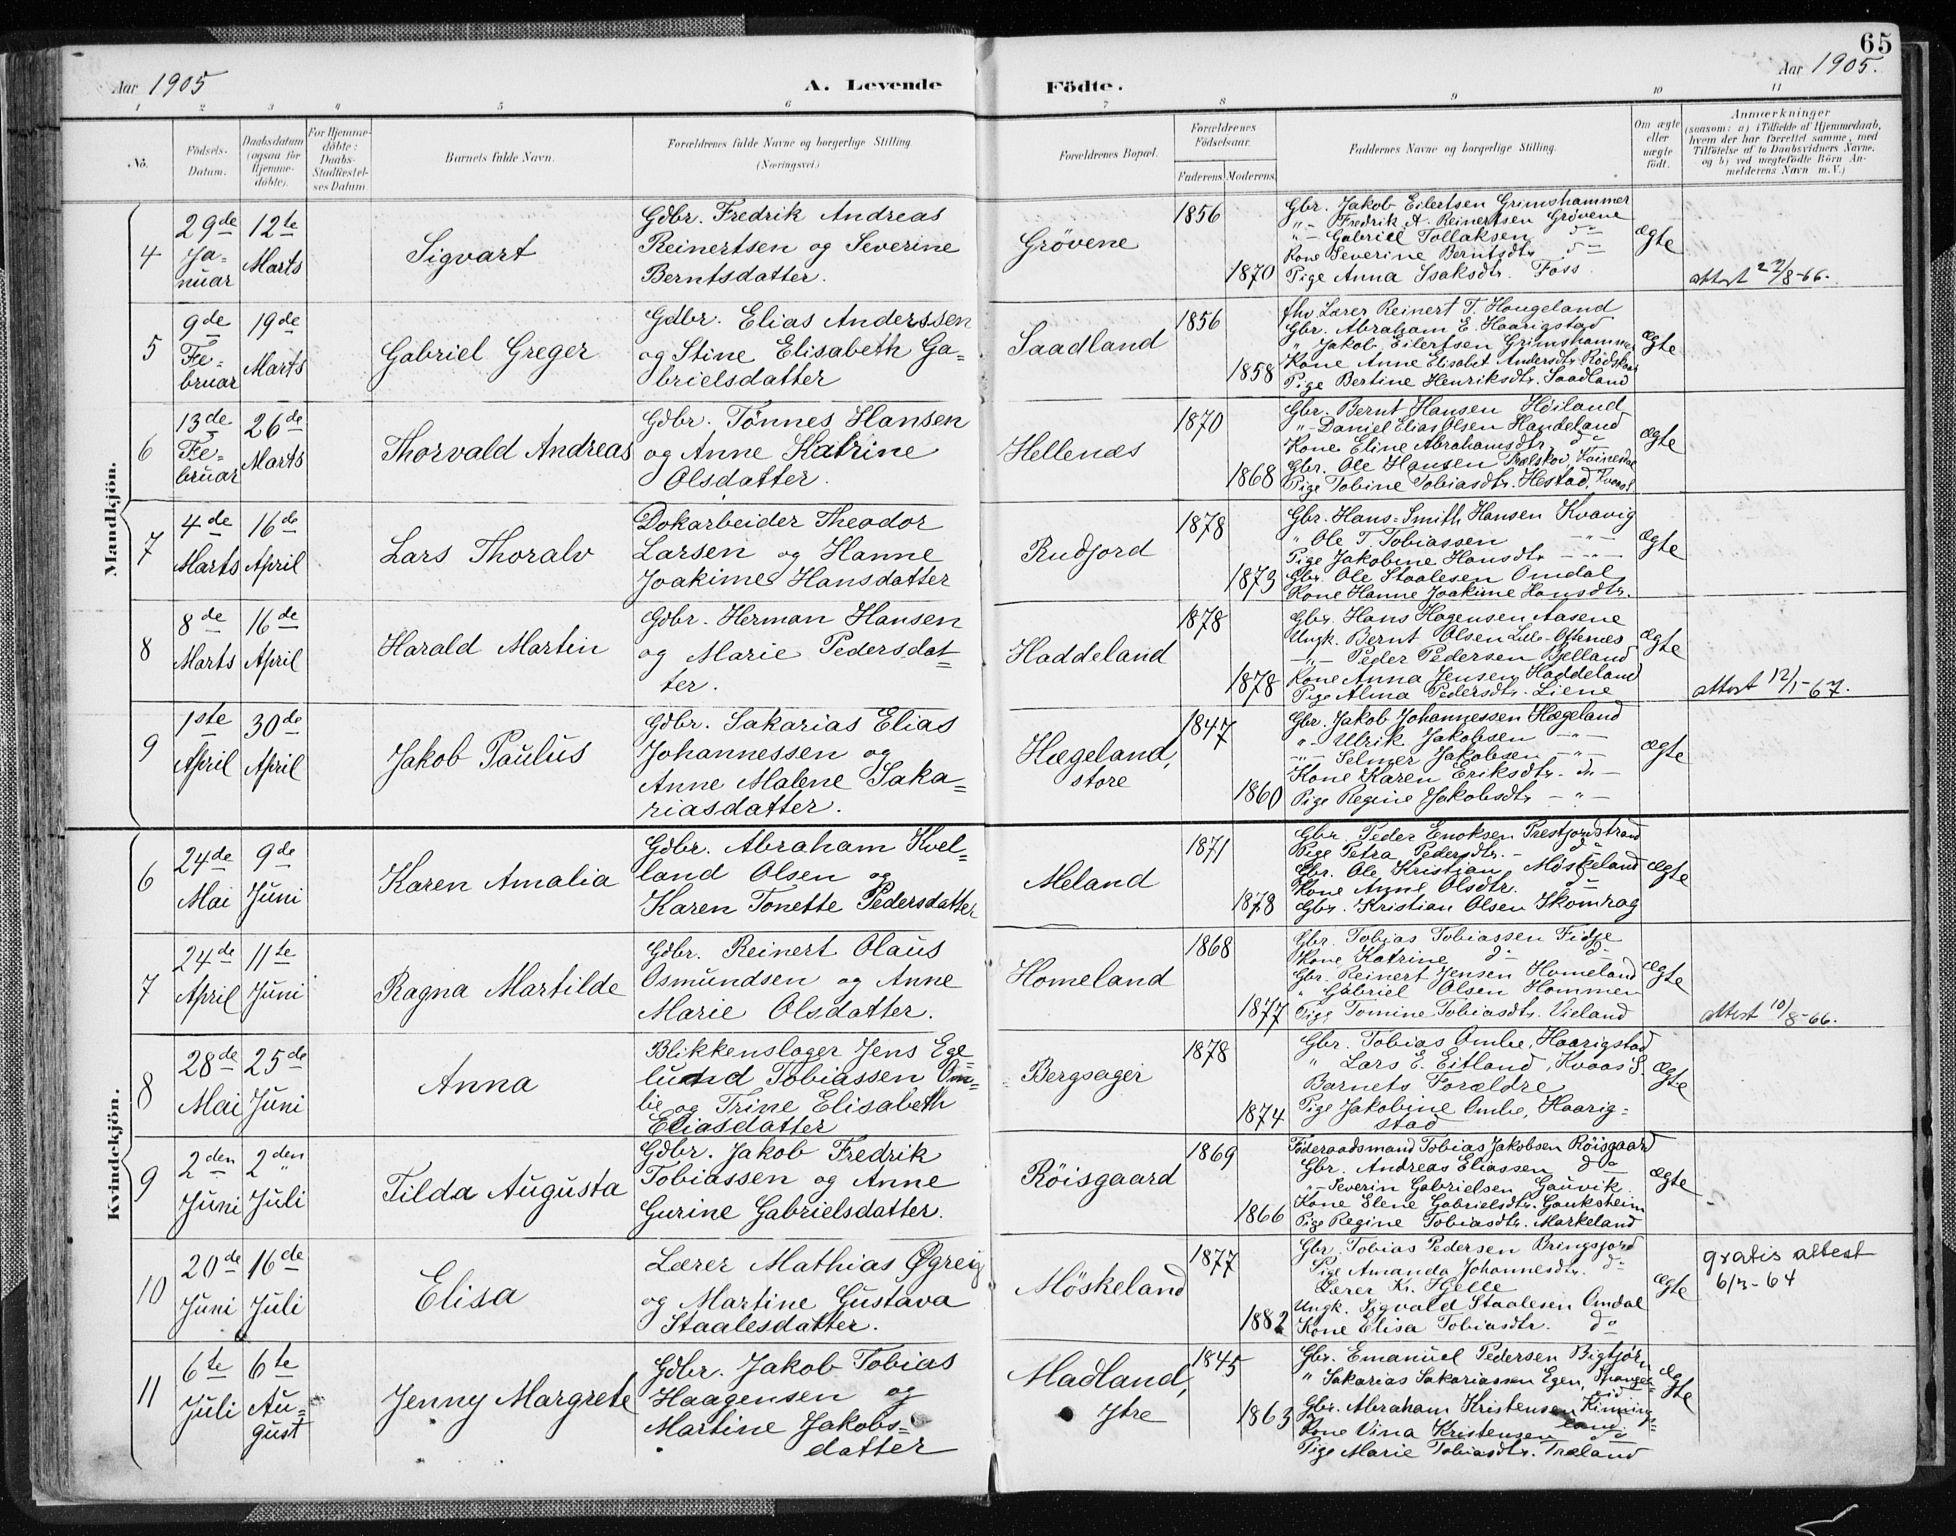 65
Aar 1905
A. Levende
Födte.
Aar 1905.
1 2 3 4 5 6 7 8 9 10 11
No.
Födsels-Datum.
Daabsdatum (ogsaa for Hjemmedöbte).
For Hjemmedöbte: Daabs-Stadfæstelses Datum
Barnets fulde Navn.
Forældrenes fulde Navne og borgerlige Stilling. (Næringsvei.)
Forældrenes Bopæl.
Forældrenes Födselsaar.
Faderens. Moderens.
Faddernes Navne og borgerlige Stilling.
Om ægte eller uægte födt.
Anmærkninger
(saasom: a) i Tilfælde af Hjemmedaab, hvem der har forrettet samme, med Tilföielse af to Daabsvidners Navne, og b) ved uægtefödte Börn Anmelderens Navn m. V.)
Mandkjön.
4
29de Januar
12te Marts
Sigvart
Gdbr. Fredrik Andreas
Reinertsen og Severine
Berntsdatter.
Grövene
1856
1870
Gbr. Jakob Eilertsen Grimshammer
"- Fredrik A. Reinertsen Grövene
"- Gabriel Tollaksen do
Kone Severine Berntsdtr. do
Pige Anna Isaksdtr. Foss
ægte
attest 22/8-66.
5
9de Februar
19de Marts
Gabriel Greger
Gdbr. Elias Anderssen
og Stine Elisabeth Ga=
brielsdatter
Saadland
1856
1858
fhv. Lærer Reinert T. Haugeland
Gbr. Abraham E. Haarigstad
" Jakob Eilertsen Grimshammer
Kone Anne Elisabet Andersdtr.
Pige Bertine Henriksdtr. Saadland
ægte
6
13de Februar
26de Marts
Thorvald Andreas
Gdbr. Tönnes Hansen
og Anne Katrine
Olsdatter.
Hellenæs
1870
1868
Gbr. Bernt Hansen Höiland
"- Daniel Elias Olsen Handeland
Kone Eline Abrahamsdtr. do
Gbr. Ole Hansen Trælskov, Kvinesdal
Pige Tobine Tobiasdtr. Hestad, Kvaas
ægte
7
4de Marts
16de April
Lars Thoralv
Dokarbeider Theodor
Larsen og Hanne
Joakime Hansdatter
Rudjord
1878
1873
Gbr. Hans-Smith Hansen Kvavig
" Ole T. Tobiassen -"-
Pige Jakobine Hansdtr -"-
Gbr. Ole Staalesen Omdal
Kone Hanne Joakime Hansdtr.
ægte
8
8de Marts
16de April
Harald Martin
Gdbr. Herman Hansen
og Marie Pedersdat-
ter.
Haddeland
1878
1878
Gbr. Hans Hagensen Aasene
Ungk. Bernt Olsen Lille-Oftenæs
-"- Peder Pedersen Bjelland
Kone Anna Jensen Haddeland
Pige Alma Pedersdtr. Liene
ægte
attest 12/1-67.
9
1ste April
30de April
Jakob Paulus
Gdbr. Sakarias Elias
Johannessen og
Anne Malene Saka=
riasdatter.
Hægeland, store
1847
1860
Gbr. Jakob Johannessen Hægeland
"- Ulrik Jakobsen -"-
-"- Selmer Jakobsen -"-
Kone Karen Eriksdtr. do -
Pige Regine Jakobsdtr -"-
ægte
Kvindekjön.
6
24de Mai
9de Juni
Karen Amalia
Gdbr. Abraham Kvel-
land Olsen og
Karen Tonette Pedersdatter
Meland
1871
1878
Gbr. Peder Enoksen Prestjordstrand
Pige Petra Pedersdtr. - do
Gbr. Ole Kristian Möskeland
Kone Anne Olsdtr. do
Gbr. Kristian Olsen Skomrag
ægte
7
24de April
11te Juni
Ragna Martilde
Gdbr. Reinert Olaus
Osmundsen og Anne
Marie Olsdatter.
Homeland
1868
1877
Gbr. Tobias Tobiassen Fidje
Kone Katrine do do
Gbr. Reinert Jensen Homeland
" Gabriel Olsen Hommen
Pige Tomine Tobiasdtr. Vieland
ægte
attest 10/8-66.
8
28de Mai
25de Juni
Anna
Blikkenslager Jens Ege
lund Tobiassen Om-
lie og Trine Elisabeth
Eliasdatter
Bergsager
1878
1874
Gbr. Tobias Omlie, Haarigstad
" Lars E. Eitland, Kvaas S.
Barnets Forældre
Pige Jakobine Omlie, Haarig=
stad
ægte
9
2den Juni
2den Juli
Tilda Augusta
Gdbr. Jakob Fredrik
Tobiassen og Anne
Gurine Gabrielsdatter.
Röisgaard
1869
1866
Föderaadsmand Tobias Jakobsen Röisgaard
Gbr. Andreas Eliassen do
"- Severin Gabrielsen Gauvik.
Kone Elene Gabrielsdtr. Gauksheim
Pige Regine Tobiasdtr. Markeland
ægte
10
20de Juni
16de Juli
Elisa
Lærer Mathias Øgreig
og Martine Gustava
Staalesdatter.
Möskeland
1877
1882
Gbr. Tobias Pedersen Bringsjord
Pige Amanda Johannesdtr. do
Lærer K. Hjelle
Ungk. Sigvald Staalesen Omdal
Kone Elisa Tobiasdtr. do
ægte
gratis attest
6/3-64
11
6te Juli
6te August
Jenny Margrete
Gdbr. Jakob Tobias
Haagensen og
Martine Jakobs=
datter
Madland, Ytre
1845
1863
Gbr. Emanuel Pedersen Bigtjörn
" Sakarias Sakariassen Egen, Spangereid
Gbr. Abraham Kristensen Kinningsland
Kone Vina Kristensen do
Pige Marie Tobiasdtr. Træland
ægte